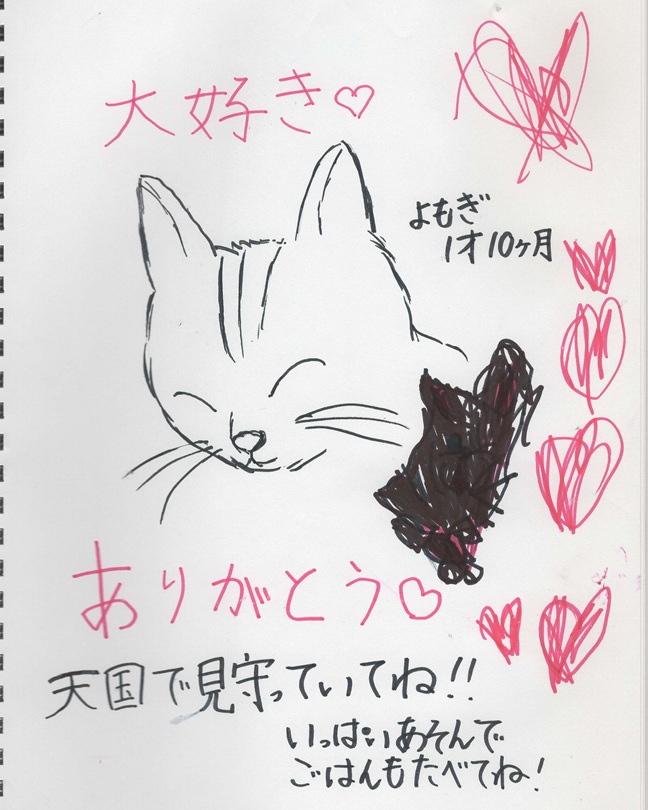 大好き♡
よもぎ
1才10ヶ月
ありがとう♡
天国で見守っていてね!!
いっぱいあそんで
ごはんもたべてね!